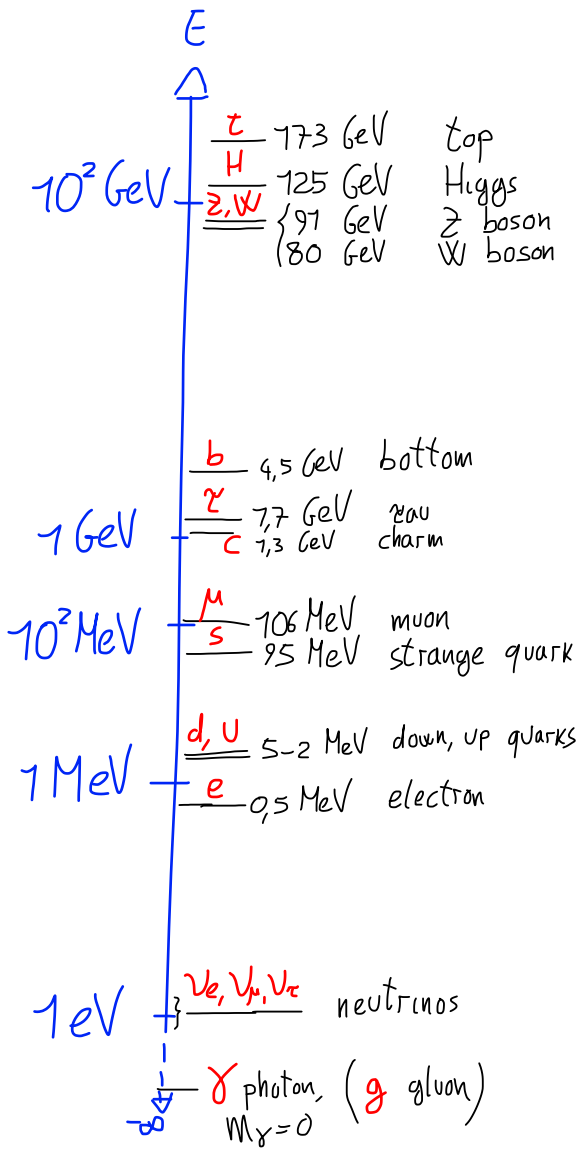 E
t 173 GeV top
H 125 GeV Higgs
10² GeV
Z, W { 91 GeV Z boson
80 GeV W boson
b 4,5 GeV bottom
τ 1,7 GeV τau
1 GeV
c 1,3 GeV charm
μ 106 MeV muon
10² MeV
s 95 MeV strange quark
d, u 5-2 MeV down, up quarks
1 MeV
e 0,5 MeV electron
νe, νμ, ντ neutrinos
1 eV
γ photon, (g gluon)
-∞ mγ=0